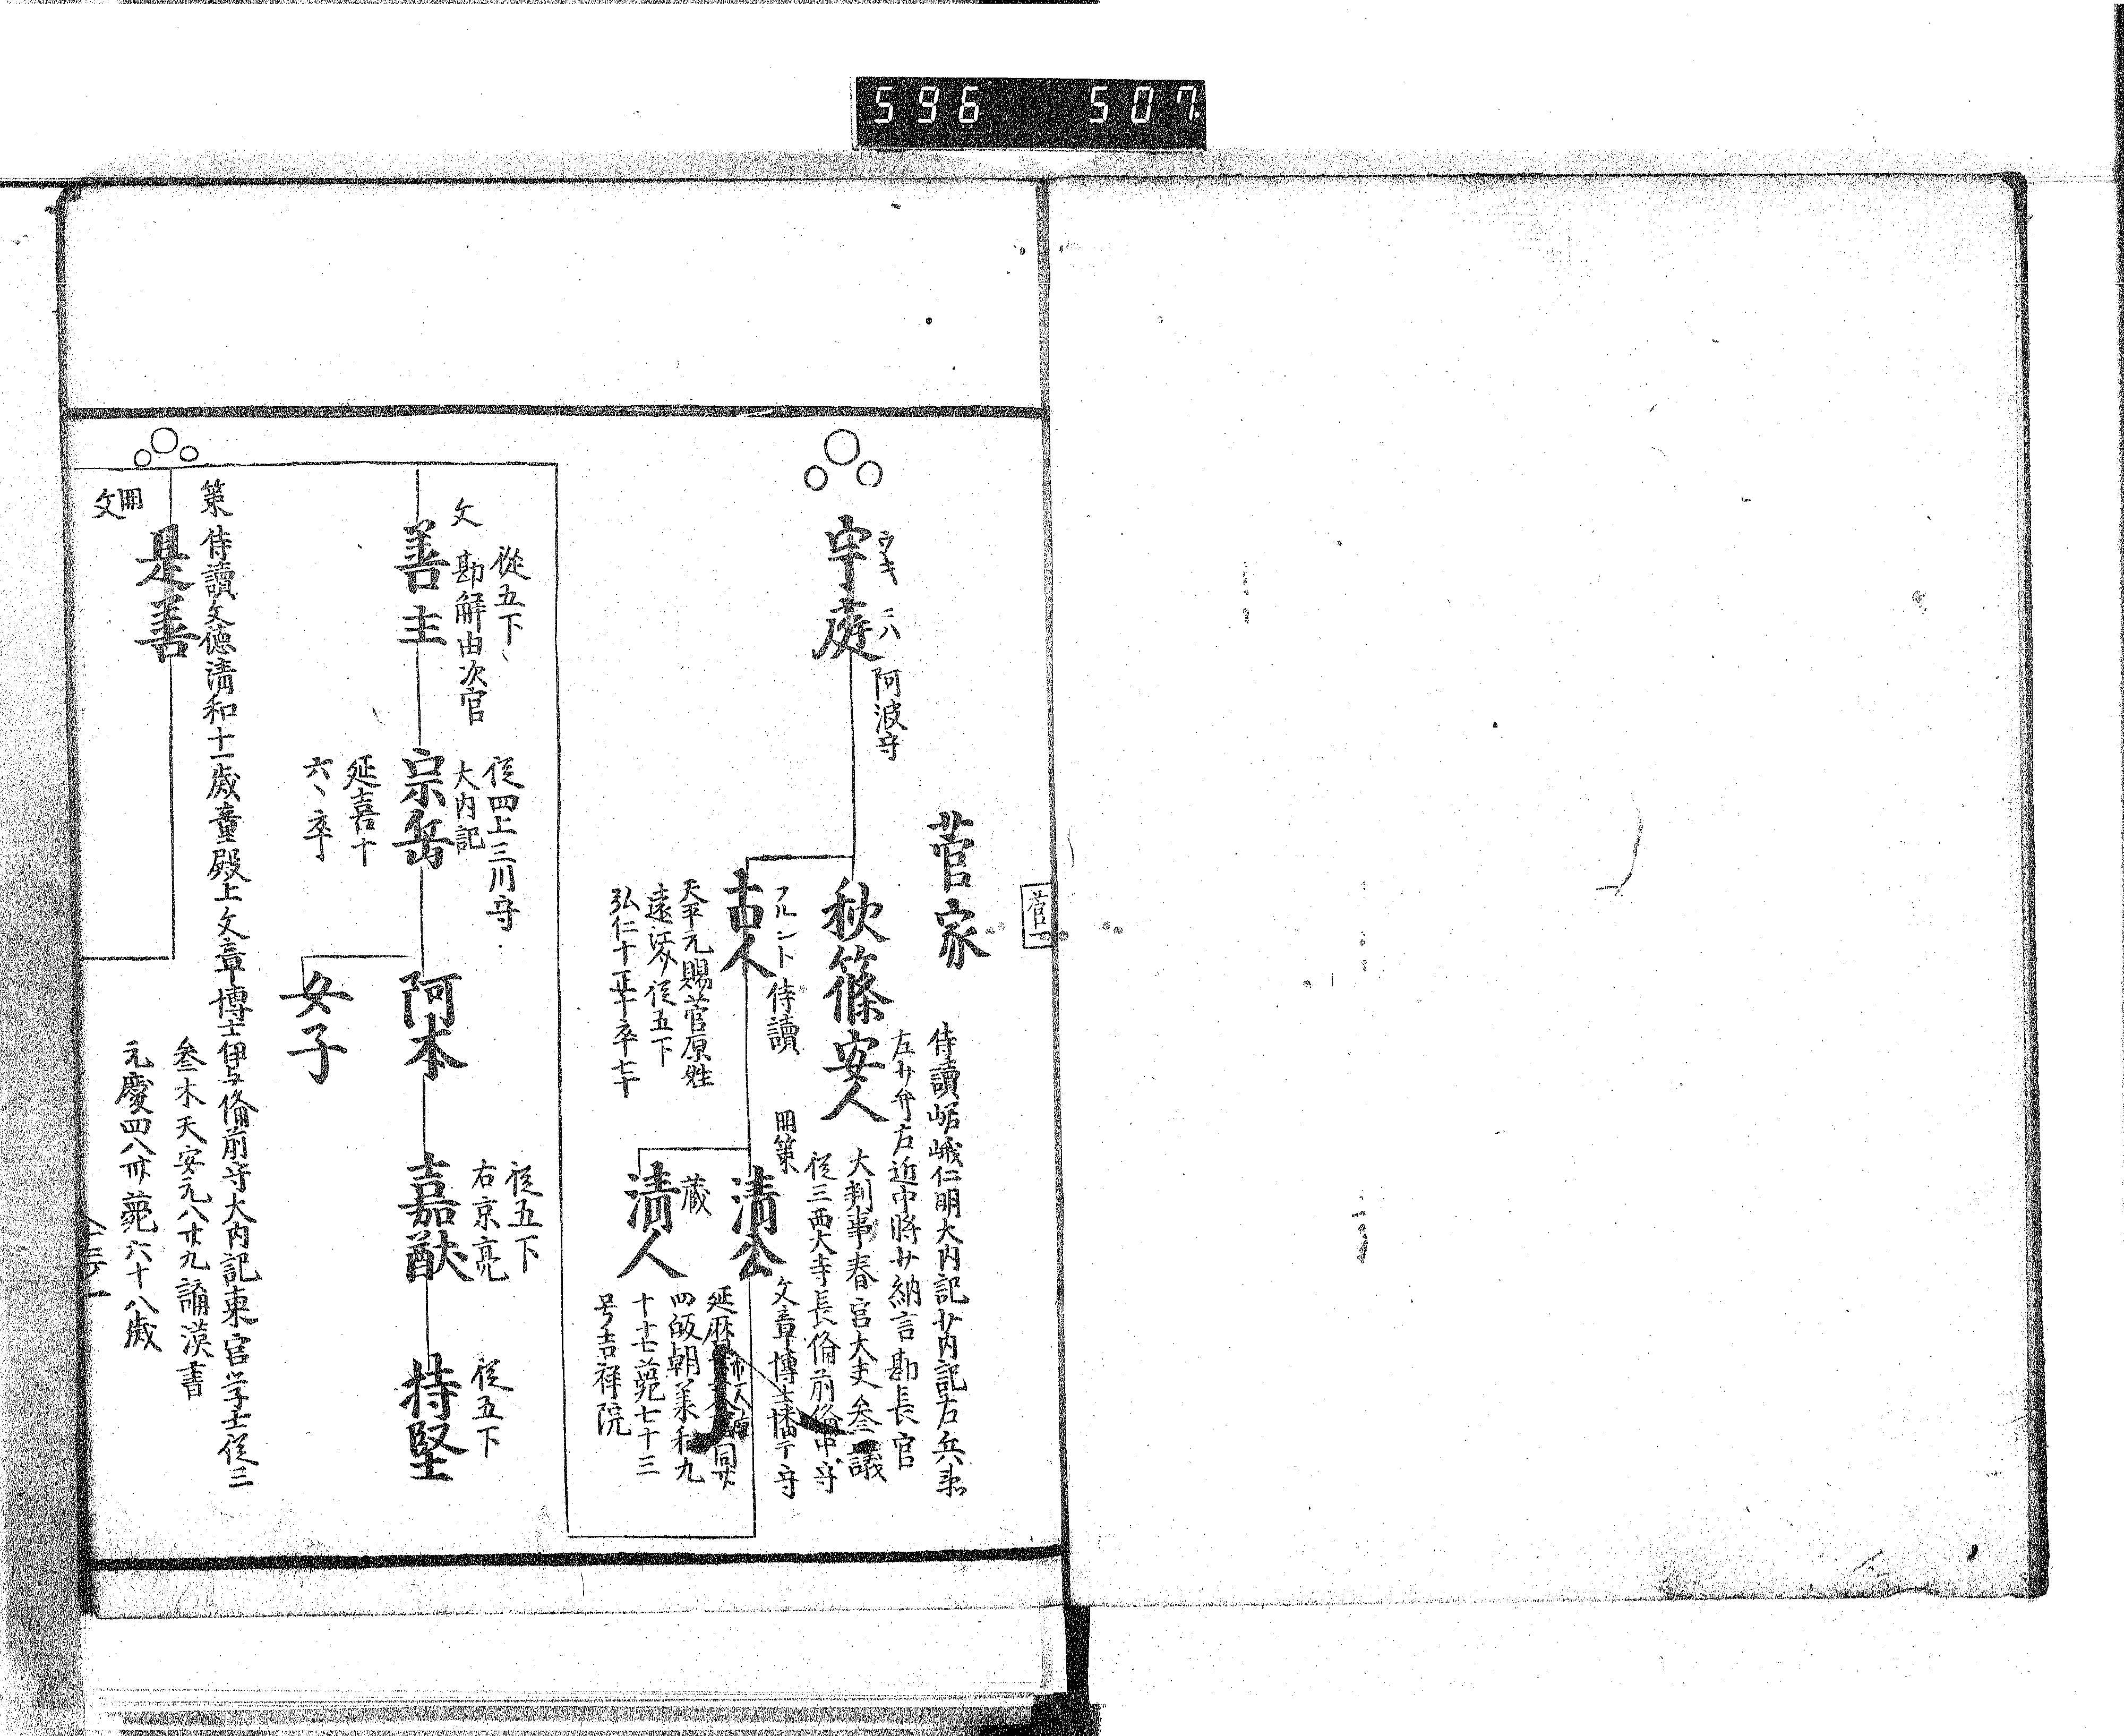 596 507
菅一
菅家
宇庭
阿波守
秋篠安人
侍讀嵯峨仁明大内記廿内記右兵衛
左廿弁左近中将廿納言勘長官
大判事春宮大夫叅議
従三西大寺長俻前俻中守
古人
フルンド 侍讀
天平元賜菅原姓
遠江介従五下
弘仁十正
卒七十
清公
開策
文章博士播
守
延暦
四皈朝羕和九
十十七薨七十三
号吉祥院
清人
蔵
善主
文
従五下
勘解由次官
宗岳
従四上三川守
大内記
延喜十
六〻卒
阿本
女子
嘉猷
従五下
右京亮
持堅
従五下
是善
開
文
策 侍讀文徳清和十一歳童殿上文章博士伊与俻前守大内記東宮学士従三
叅木天安元八廿九講漢書
元慶四八卅薨六十八歳